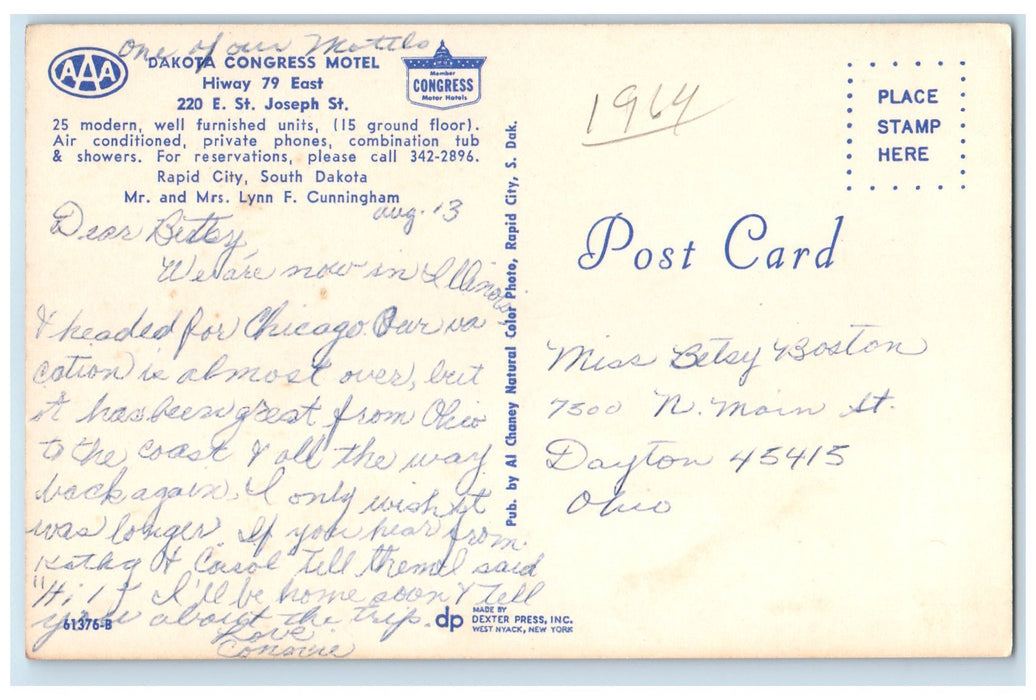 One of our Mottls
AAA
DAKOTA CONGRESS MOTEL
Hiway 79 East
220 E. St. Joseph St.
Member
CONGRESS
Motor Hotels
25 modern, well furnished units, (15 ground floor).
Air conditioned, private phones, combination tub
& showers. For reservations, please call 342-2896.
Rapid City, South Dakota
Mr. and Mrs. Lynn F. Cunningham
Aug. 13
Dear Betsy,
We are now in Illinois
& headed for Chicago. Our va
cation is almost over, but
it has been great from Ohio
to the coast & all the way
back again. I only wish it
was longer. If you hear from
Kathy & Carol tell them I said
"Hi!" I'll be home soon & tell
you about the trip.
Love
Connie
61376-B
Pub. by Al Chaney Natural Color Photo, Rapid City, S. Dak.
dp
MADE BY
DEXTER PRESS, INC.
WEST NYACK, NEW YORK
1964
PLACE
STAMP
HERE
Post Card
Miss Betsy Boston
7300 N. Main St.
Dayton 45415
Ohio